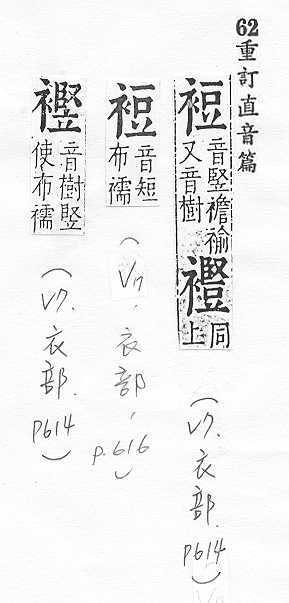 62重訂直音篇
裋
音竪襜褕
又音樹
同
上
(V7.衣部.P614)
裋
音短
布襦
(V7.衣部,P.616)
音樹竪
使布襦
(V7.衣部.P614)